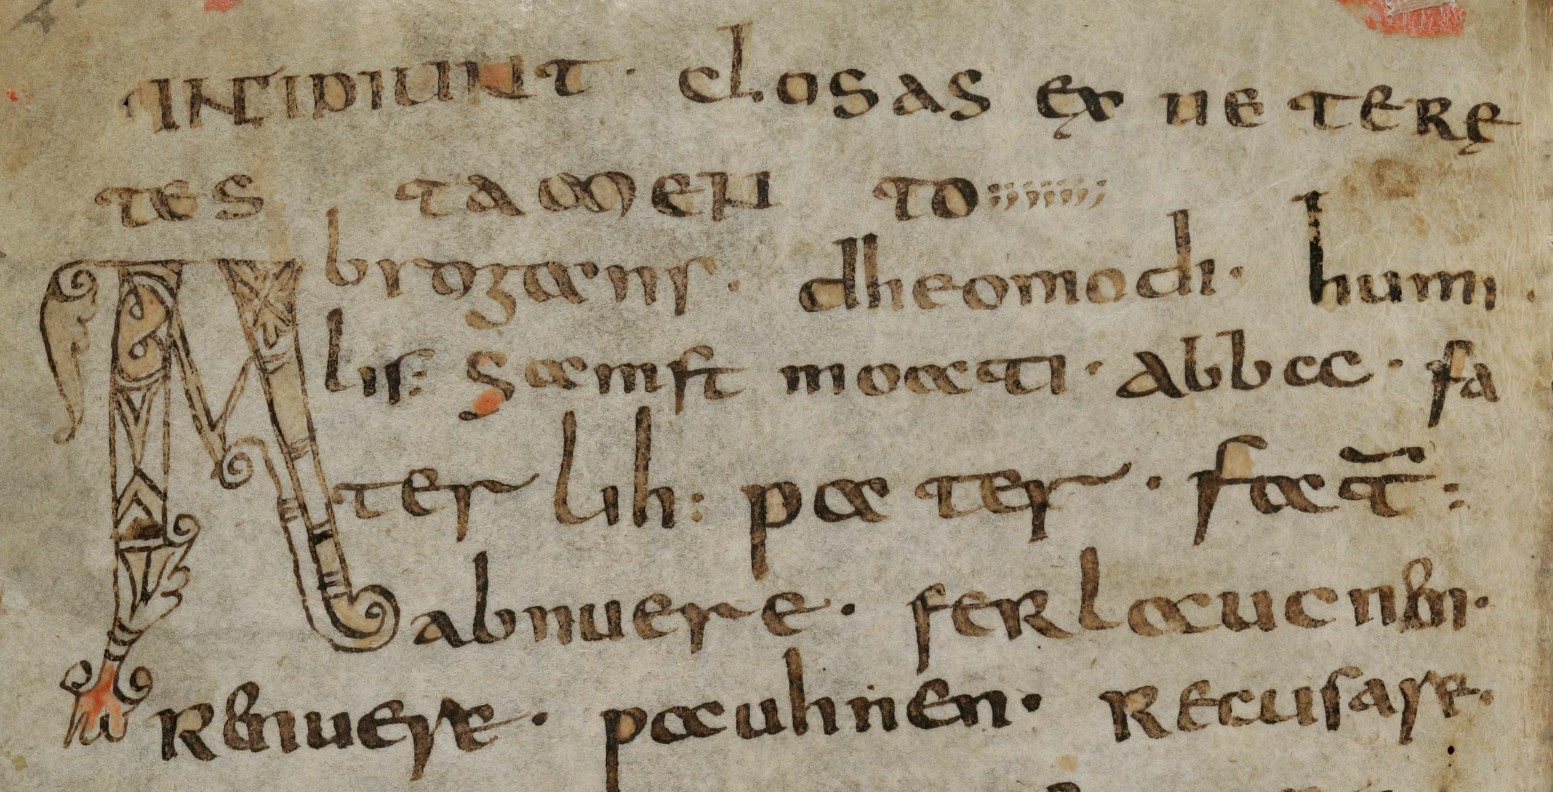 INCIPIUNT · CLOSAS EX UETERE
TES TAMEN TO;;;;;;
Abrogans · dheomodi · humi
lis: samft moati · abba · fa
ter lih: pater · fat̄:
abnuere · ferlaucnen ·
Renuere · pauhnen · Recusare ·